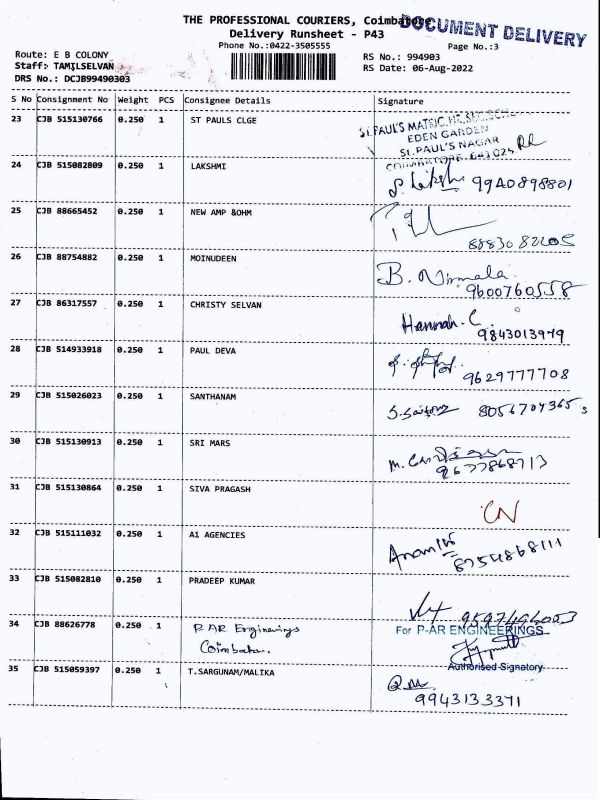 THE PROFESSIONAL COURIERS, Coimbatore
DOCUMENT DELIVERY
Delivery Runsheet - P43
Phone No.:0422-3505555
Page No.:3
Route: E B COLONY
Staff: TAMILSELVAN
DRS No.: DCJB99490303
RS No.: 994903
RS Date: 06-Aug-2022
S No Consignment No Weight PCS Consignee Details Signature
23 CJB 515130766 0.250 1 ST PAULS CLGE
ST.PAUL'S MATRIC.HR.SEC.SCH
EDEN GARDEN
ST.PAUL'S NAGAR
COIMBATORE-641025
24 CJB 515082809 0.250 1 LAKSHMI
9940898801
25 CJB 88665452 0.250 1 NEW AMP &OHM
8883082205
26 CJB 88754882 0.250 1 MOINUDEEN
B. Nirmala
9600760558
27 CJB 86317557 0.250 1 CHRISTY SELVAN
Hannah. C
9843013979
28 CJB 514933918 0.250 1 PAUL DEVA
9629777708
29 CJB 515026023 0.250 1 SANTHANAM
8056704365
30 CJB 515130913 0.250 1 SRI MARS
9677868713
31 CJB 515130864 0.250 1 SIVA PRAGASH
CN
32 CJB 515111032 0.250 1 A1 AGENCIES
8754868111
33 CJB 515082810 0.250 1 PRADEEP KUMAR
34 CJB 88626778 0.250 1 P-AR Enginerings
For P-AR ENGINEERINGS
Authorised Signatory
35 CJB 515059397 0.250 1 T.SARGUNAM/MALIKA
9943133371